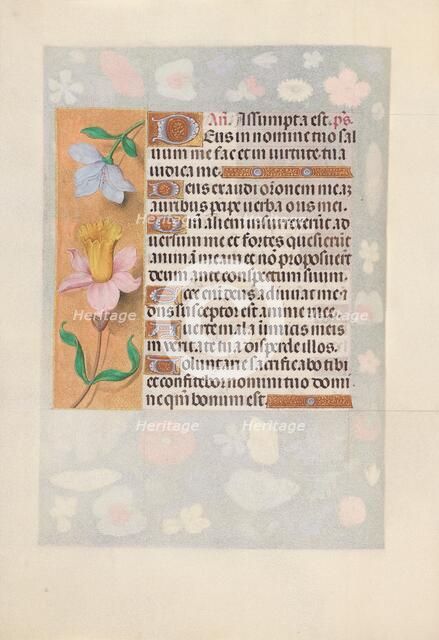 Añ. Assumpta est. ps.
Deus in nomine tuo sal
uum me fac et in uirtute tua
iudica me.
Deus exaudi orõnem meã
auribus pcipe uerba oris mei.
Qm̃ alieni insurrexerũt ad
uersum me et fortes quesierũt
animam meam et nõ proposuerũt
deum ante conspectum suum.
Ecce eni deus adiuuat me ⁊
dñs susceptor est anime mee.
Auerte mala inimicis meis
in veritate tua disperde illos.
Voluntarie sacrificabo tibi
et confitebor nomini tuo domi
ne qm̃ bonum est.
Heritage
Heritage
Heritage
Heritage
Heritage
Heritage